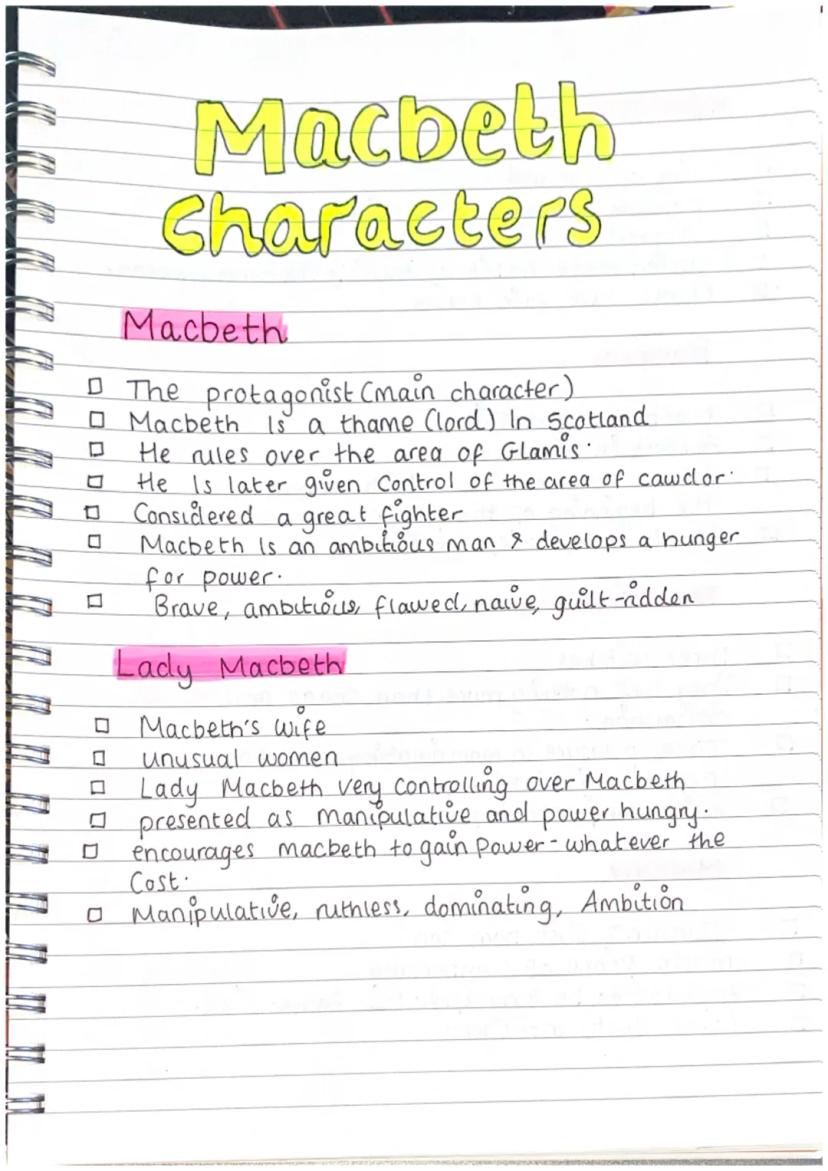 Macbeth
Characters
Macbeth
The protagonist (main character)
Macbeth is a thame (lord) In Scotland
He rules over the area of Glamis.
He Is later given Control of the area of cawdor.
Considered a great fighter
Macbeth Is an ambitious man & develops a hunger
for power.
Brave, ambitious, flawed, naive, guilt-ridden
Lady Macbeth
Macbeth's wife
unusual women
Lady Macbeth very Controlling over Macbeth
presented as manipulative and power hungry.
encourages macbeth to gain Power - whatever the
Cost.
Manipulative, ruthless, dominating, Ambition